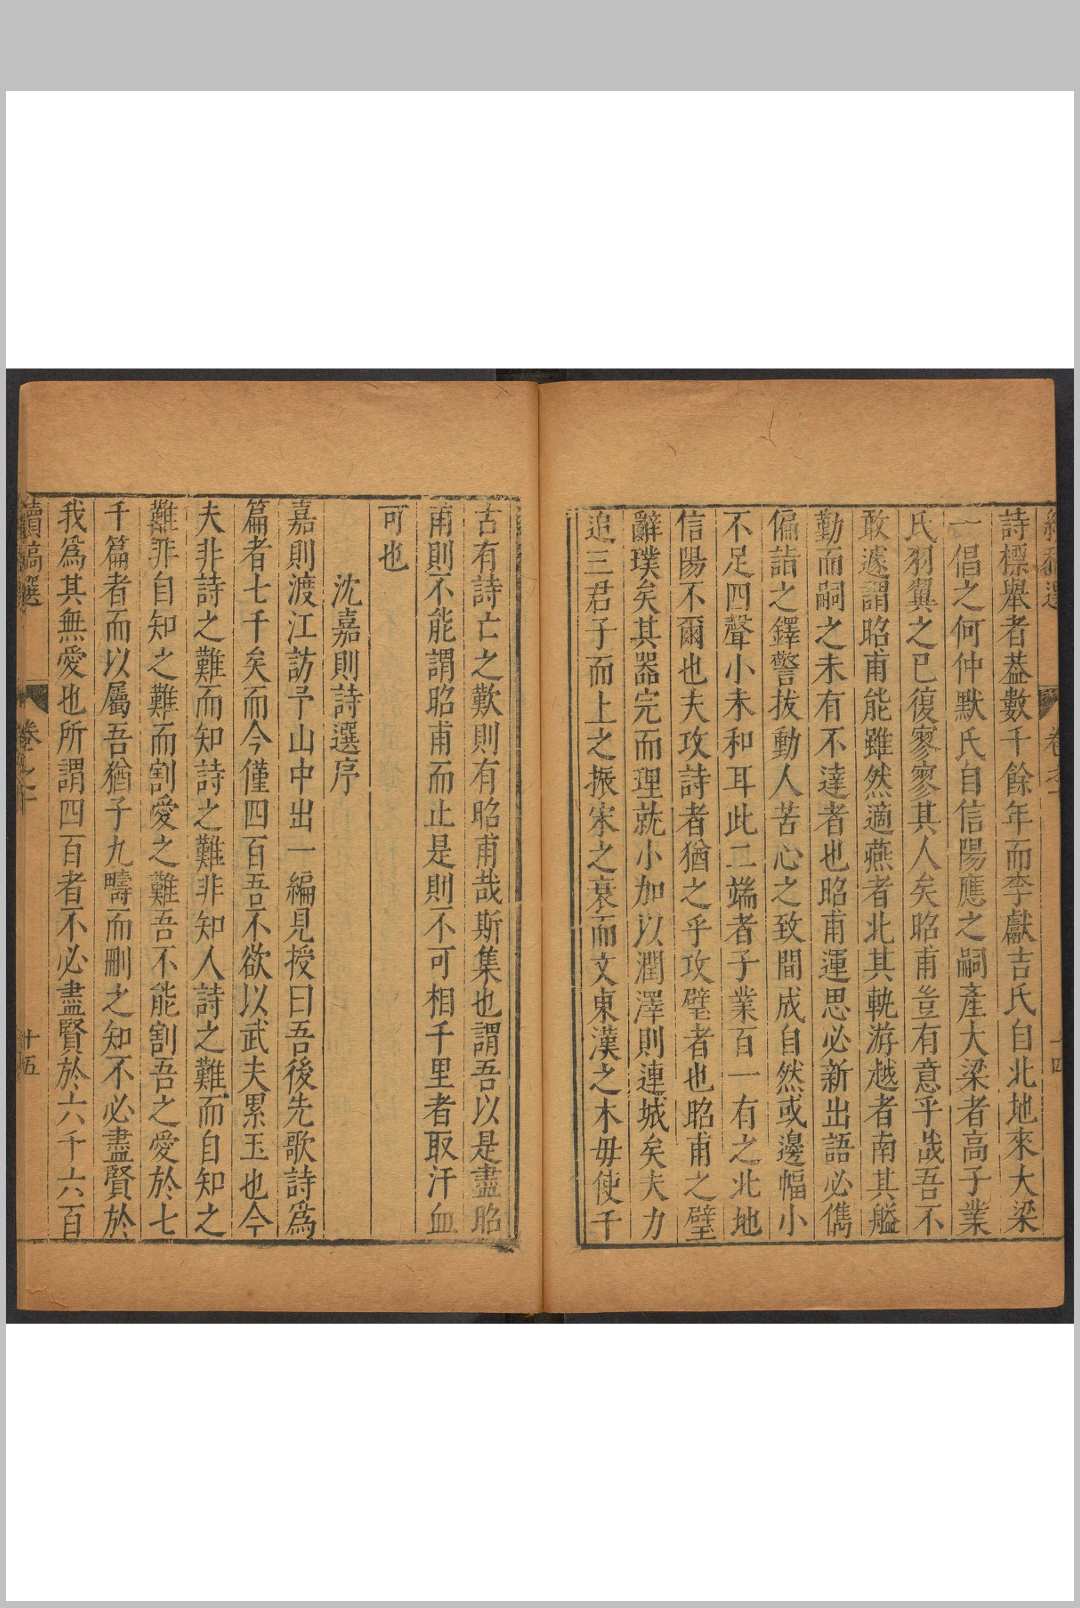 詩標舉者葢數千餘年而李獻吉氏自北地來大梁
一倡之何仲默氏自信陽應之嗣產大梁者高子業
氏羽翼之已復寥寥其人矣昭甫豈有意乎哉吾不
敢遽謂昭甫能雖然適燕者北其軌游越者南其艦
勤而嗣之未有不達者也昭甫運思必新出語必儁
偏詣之鐸警拔動人苦心之致間成自然或邊幅小
不足四聲小未和耳此二端者子業百一有之北地
信陽不爾也夫攻詩者猶之乎攻璧者也昭甫之璧
辭璞矣其器完而理就小加以潤澤則連城矣夫力
追三君子而上之振宋之衰而文東漢之木毋使千
古有詩亡之歎則有昭甫哉斯集也謂吾以是盡昭
甫則不能謂昭甫而止是則不可相千里者取汗血
可也
沈嘉則詩選序
嘉則渡江訪予山中出一編見授曰吾後先歌詩爲
篇者七千矣而今僅四百吾不欲以武夫累玉也今
夫非詩之難而知詩之難非知人詩之難而自知之
難非自知之難而割愛之難吾不能割吾之愛於七
千篇者而以屬吾猶子九疇而刪之知不必盡賢於
我爲其無愛也所謂四百者不必盡賢於六千六百
續稿選
卷之
十五